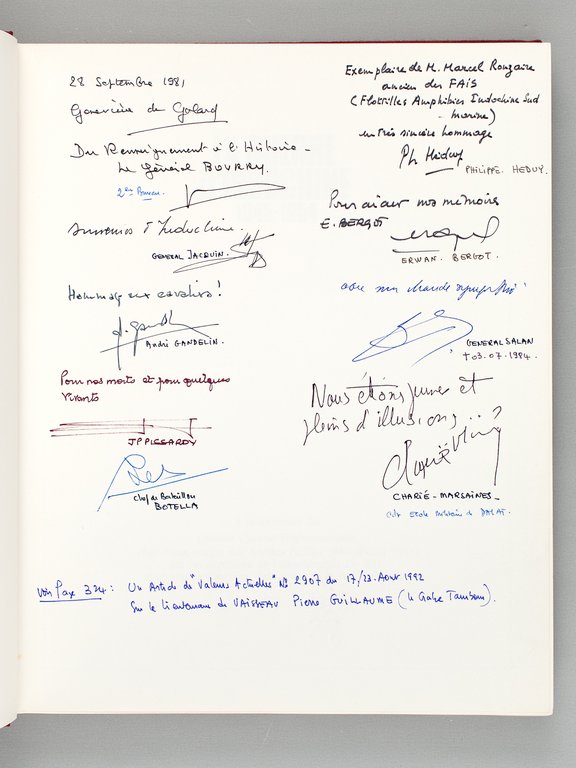 28 Septembre 1981
Geneviève de Galard
Du Renseignement à l'Histoire -
Le Général BOURRY.
2ème Bureau
Survenos d'Indochine.
GENERAL JACQUIN.
Hommage aux cavaliers!
André GANDELIN.
Pour nos morts et pour quelques
vivants
JP PISSARDY
Chef de Bataillon
BOTELLA
Exemplaire de M. Marcel Rouzaire
ancien des FAIS
(Flottilles Amphibies Indochine Sud
- marine)
en très sincère hommage
Ph Héduy
PHILIPPE HEDUY.
Pour aider nos mémoires
E. BERGOT
ERWAN BERGOT.
avec ma chaude sympathie
GENERAL SALAN
† 03.07.1984.
Nous étions jeunes et
pleins d'illusions..?
CHARIÉ-MARSAINES_
Cdt Ecole militaire de DALAT.
Voir Page 324: Un Article de "Valeurs Actuelles" N° 2907 du 17/23. Aout 1992
Sur le lieutenant de VAISSEAU Pierre GUILLAUME (le Crabe Tambour).